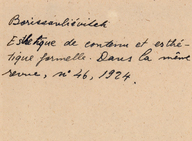 Borissavliévitch
Esthétique de contenu et esthé-
tique formelle. Dans la même
revue, n° 46, 1924.